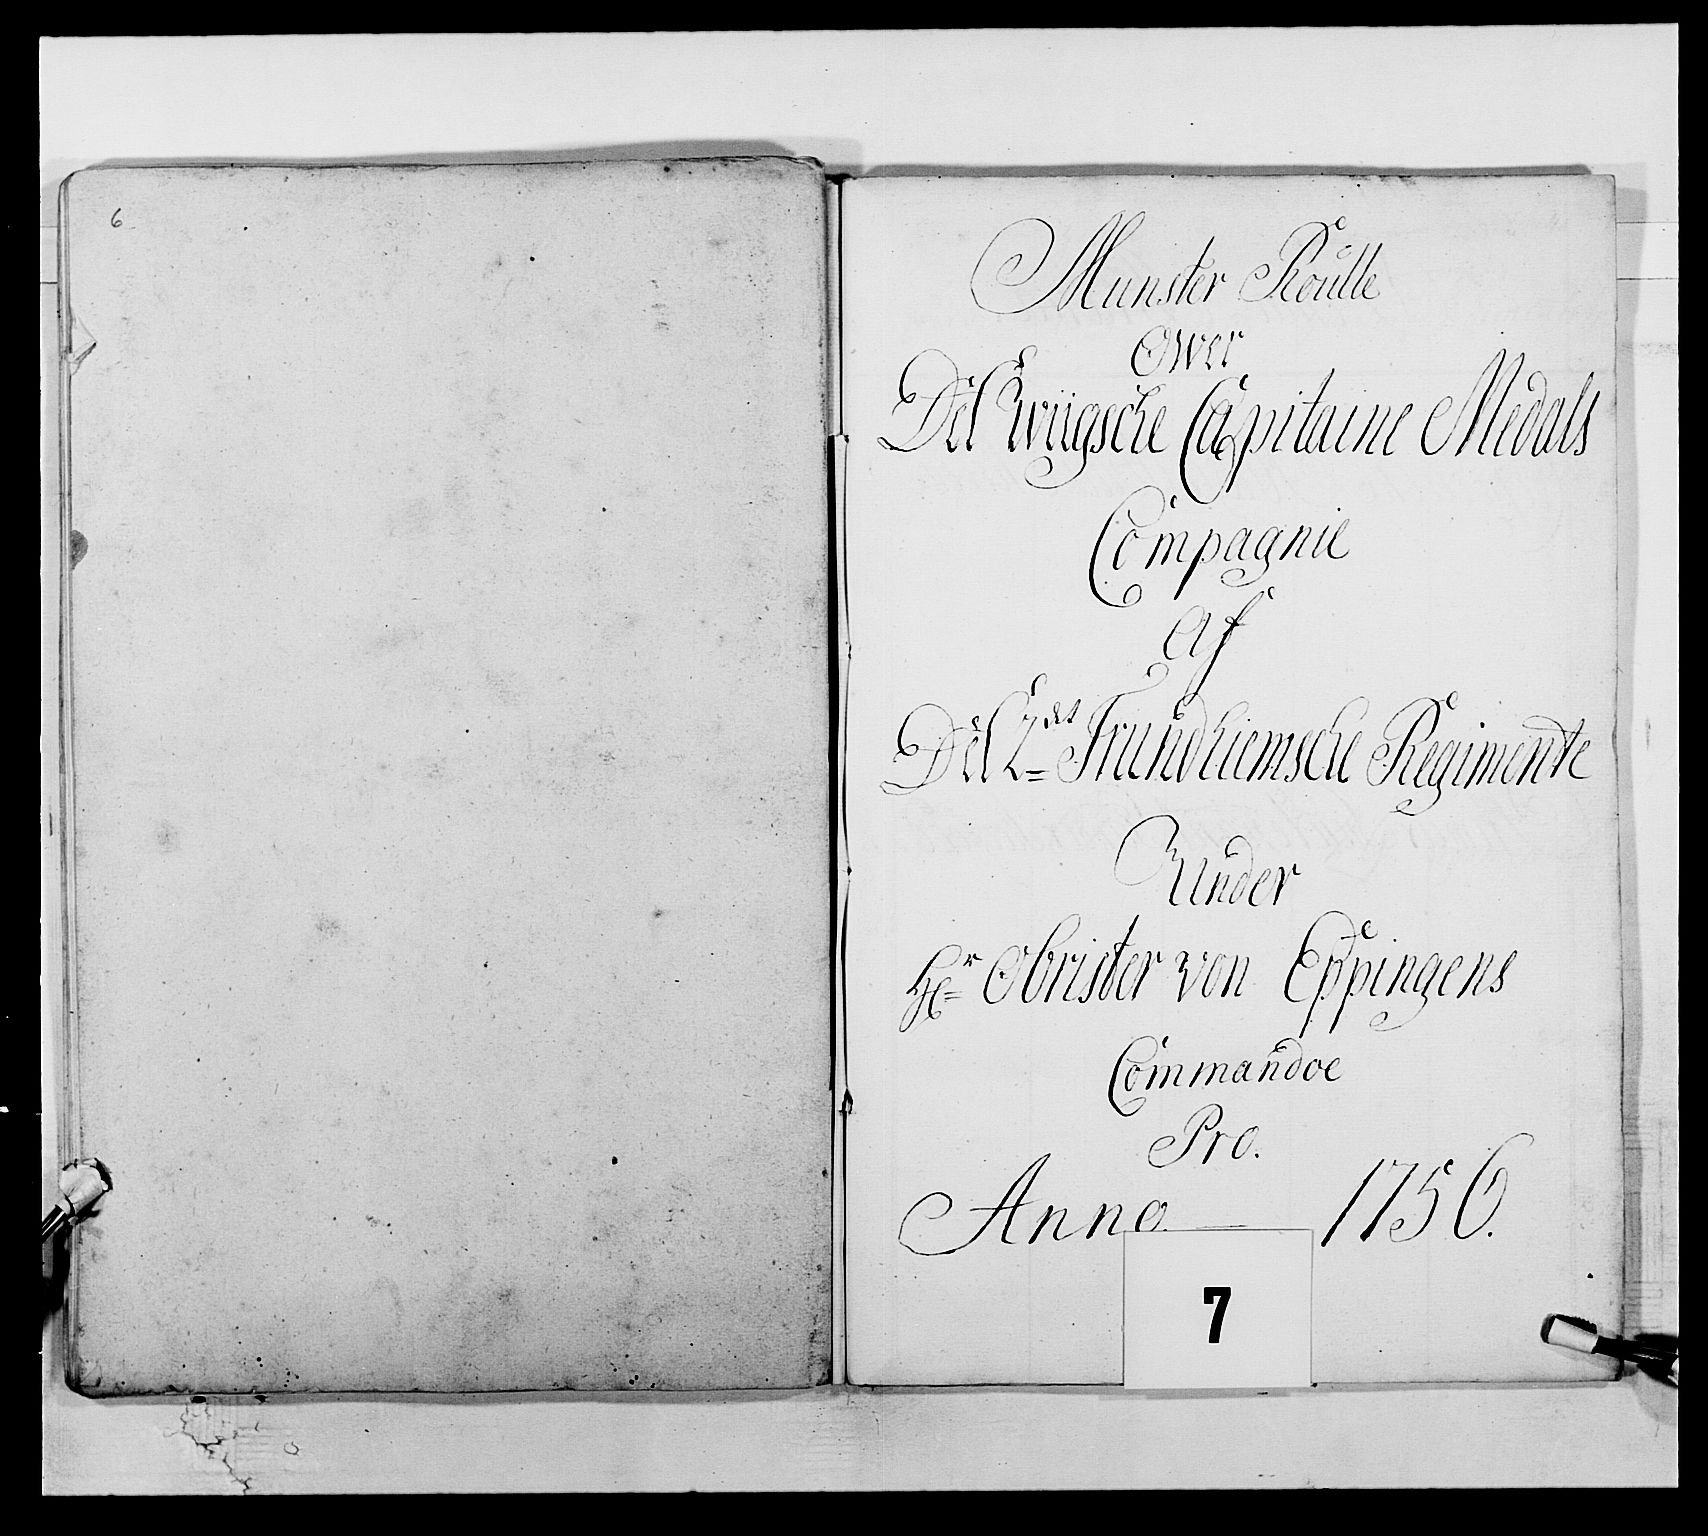 6
Munster Roulle
Over
Det Ewiigsche Capitaine Medals
Compagnie
Af
Det 2det Trundhiemsche Regimente
Under
Hr Obrister von Eppingens
Commandoe
Pro.
Anno 1756.
7